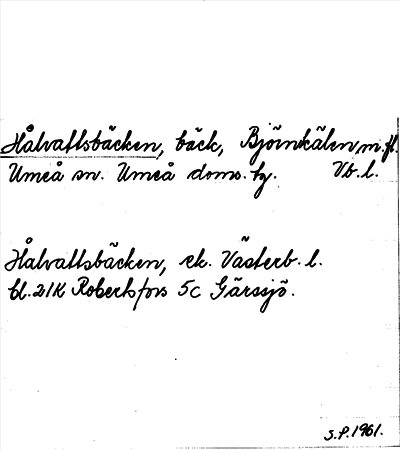 Hålvattsbäcken, bäck, Björnkälen, m.fl.
Umeå sn. Umeå doms. hg. Vb. l.
Hålvattsbäcken, ek. Västerb. l.
bl. 21K Robertsfors 5c Gärssjö.
S.P. 1961.